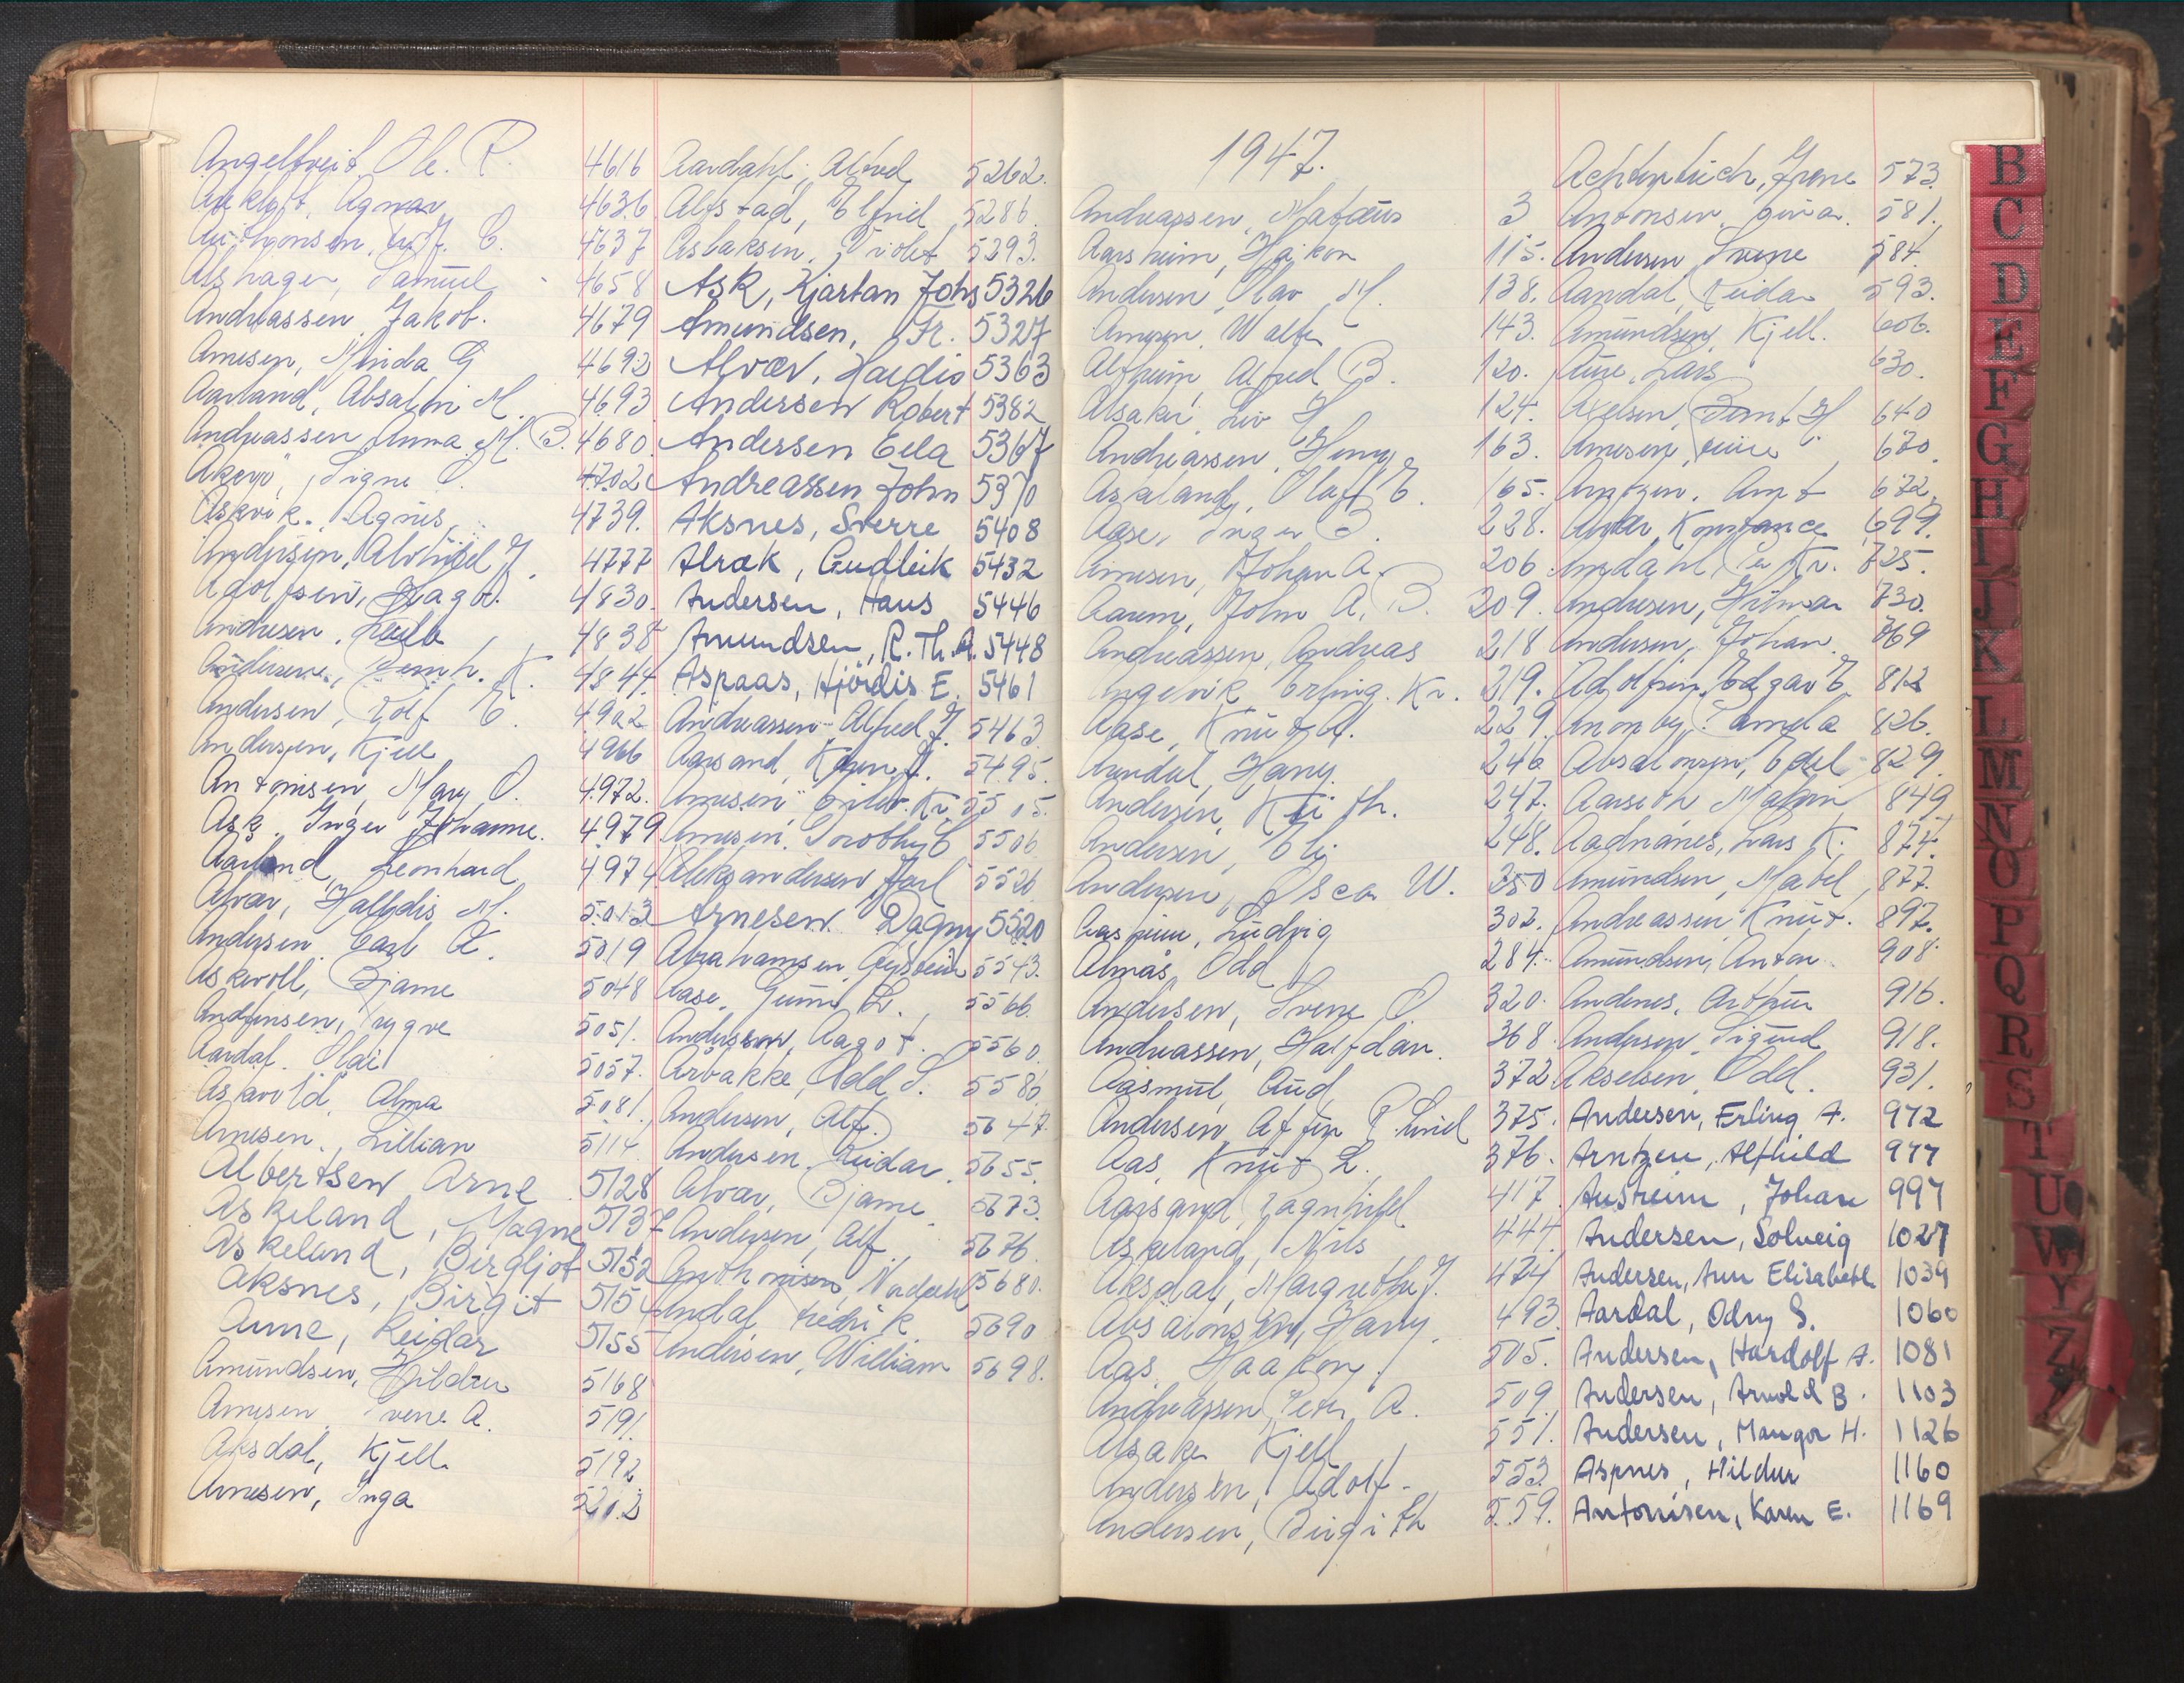 Angeltveit, Ole. P. 4616
Agnar 4636
4637
Alshager, Samuel 4658
Andreassen Jakob. 4679
Arnesen, Minda G 4692
Aarland, Absalon M. 4693
Andreassen Anna M. B. 4680
Signe 4702
Askvik. Agnes. 4739.
Andersen, Alvhild J. 4777
Adolfsen, Hagb. 4830.
Andresen. 4838
4844
Andersen, Rolf E. 4902
Andersen, Kjell 4966
Antonisen, Mary O. 4972.
Ask. Inger Johanne. 4979
Aarland, Leonhard 4974
Alvær, Halldis M. 5013
Andersen Carl A. 5019
Askevoll, Bjarne 5048
Andersen, Trygve 5051.
Aardal. Olai 5057.
Askvold, Alma 5081
Arnesen, Lillian 5114
Albertsen Arne 5128
Askeland, Magne 5137
Askeland, Birgljot 5152
Aksnes, Birgit 5154
Aune, Reidar 5155
Amundsen, Hildur 5168
Arnesen, Sverre A. 5191.
Aksdal, Kjell 5192
Arnesen, Inga 5203
Aardahl, Alfred 5262.
Alfstad, Elfrid 5286.
Asbaksen, Violet 5293.
Ask, Kjartan Johs 5326
Amundsen, Fr. 5327
Alvær, Haldis 5363
Andersen Robert 5382
Andersen Eela 5367
Andreassen John 5370
Aksnes, Sverre 5408
Alræk, Gudleik 5432
Andersen, Hans 5446
Amundsen, R. Th. A. 5448
Aspaas, Hjördis E. 5461
Andreassen Alfred J. 5463
Aarsand, Karen 5495.
Arnesen, Kr. 5505.
Arnesen. Dorothy E 5506
Aleksandersen, Karl 5526
Arnesen Dagny 5520
Abrahamsen, Øystein 5543.
Aase, Gunn 5566.
Anderssen, Aagot. 5560.
Årbakke, Odd S. 5586
Andersen, Alf. 5647
Andersen. Reidar. 5655.
Alvær, Bjarne 5673.
Andersen, Alf 5676.
Anthonisen, 5680.
Andal Fredrik 5690
Andersen, William 5698.
1947.
Andreassen, Matæus 3
Aarsheim, Håkon 115.
Andersen, Olav M. 138.
Arnesen, Walter 143.
Alfheim, Alfred B. 120.
Alsaker, Liv H 124.
Andreassen, Henry 163.
Askeland, Olaf E. 165.
Aase, Inger B. 228.
Arnesen, Johan A. 206.
Aarem, John A. B. 209.
Andreassen, Andreas 218
Angelvik Erling. Kr. 219.
Aase, Knut A. 229.
Arendal, Harry. 246
Andersen, Th. 247.
Andersen, Eli 248.
Andersen, Oscar W. 250
Aasheim, Ludvig 302.
Almås, Odd 284.
Andersen, Sverre O 320.
Andreassen, Halfdan. 368
Aasmul, Aud 372.
Andersen 375.
Aas, Knut L. 376.
Aarsand, Ragnhild 417.
Askeland, Nils 444
Aksdal, Margrethe J. 474
Absalonsen, Harry. 493
Aas, Haakon. 505.
Andreassen, Peter A. 509
Alsaker Kjell 551.
Andersen, Adolf. 553
Andersen, Birgith 559.
Irene 573.
Antonsen. 581.
Andersen, Sverre 584
Aandal, Reidar 593.
Amundsen, Kjell. 606.
Aure, Lars 630.
Axelsen, Bernt H 640
Arnesen, 670
Arntzen. Arnt 672.
Konstance 699.
Kr. 725.
Andresen, Hilmar 730.
Andersen, Johan. 769
Adolfsen, Edgar E. 812
Anonby, Pamela 826.
Absalonsen, Edel 829.
Aarseth Malvin 849
Aadnanes, Lars K. 874.
Amundsen, Mabel 877.
Andreassen Knut. 897.
Amundsen, Anton. 908.
Andenes, Arthur 916.
Andersen, Sigurd 918.
Akselsen, Odd. 931.
Andersen, Erling A. 972
Arntzen, Alfhild 977
Austreim, Johan 997
Andersen, Solveig 1027
Andersen, Ann Elisabeth 1039
Aardal, Odny S. 1060
Andersen, Hardolf A. 1081
Andersen, Arnold B. 1103
Andersen, Mangor H. 1126
Aspnes, Hildur 1160
Antonisen, Karen E. 1169
B
C
D
E
F
G
H
I
J
K
L
M
N
O
P
Q
R
S
T
U
W
Y
Z